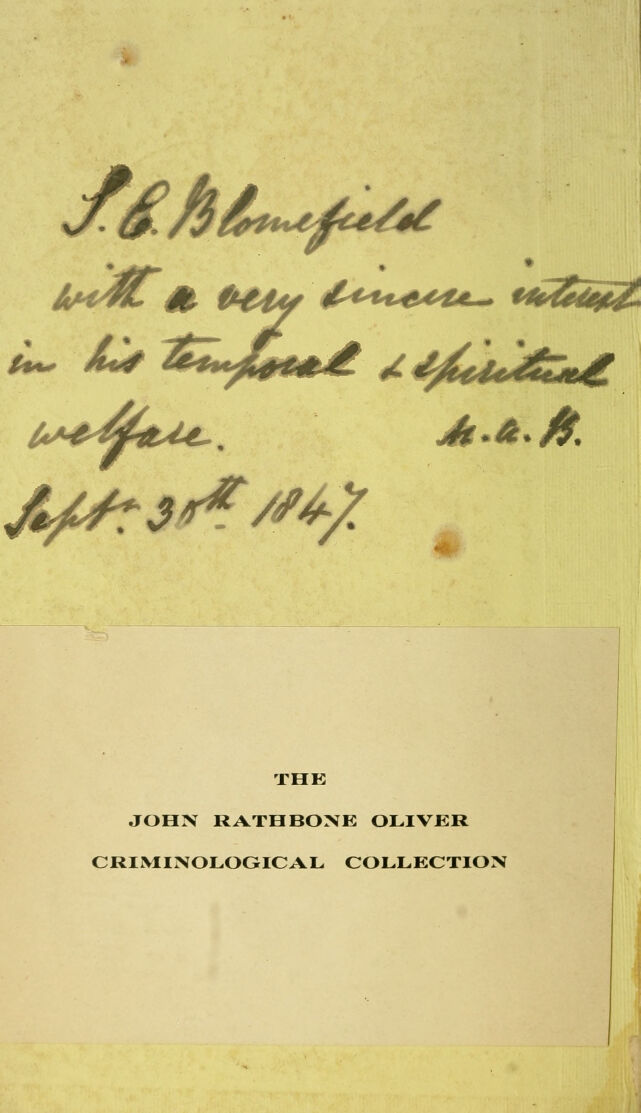 S. E. Blomefield
with a very sincere interest
in his temporal & spiritual
welfare. M. A. B.
Septr. 30th 1847.
THE
JOHN RATHBONE OLIVER
CRIMINOLOGICAL COLLECTION